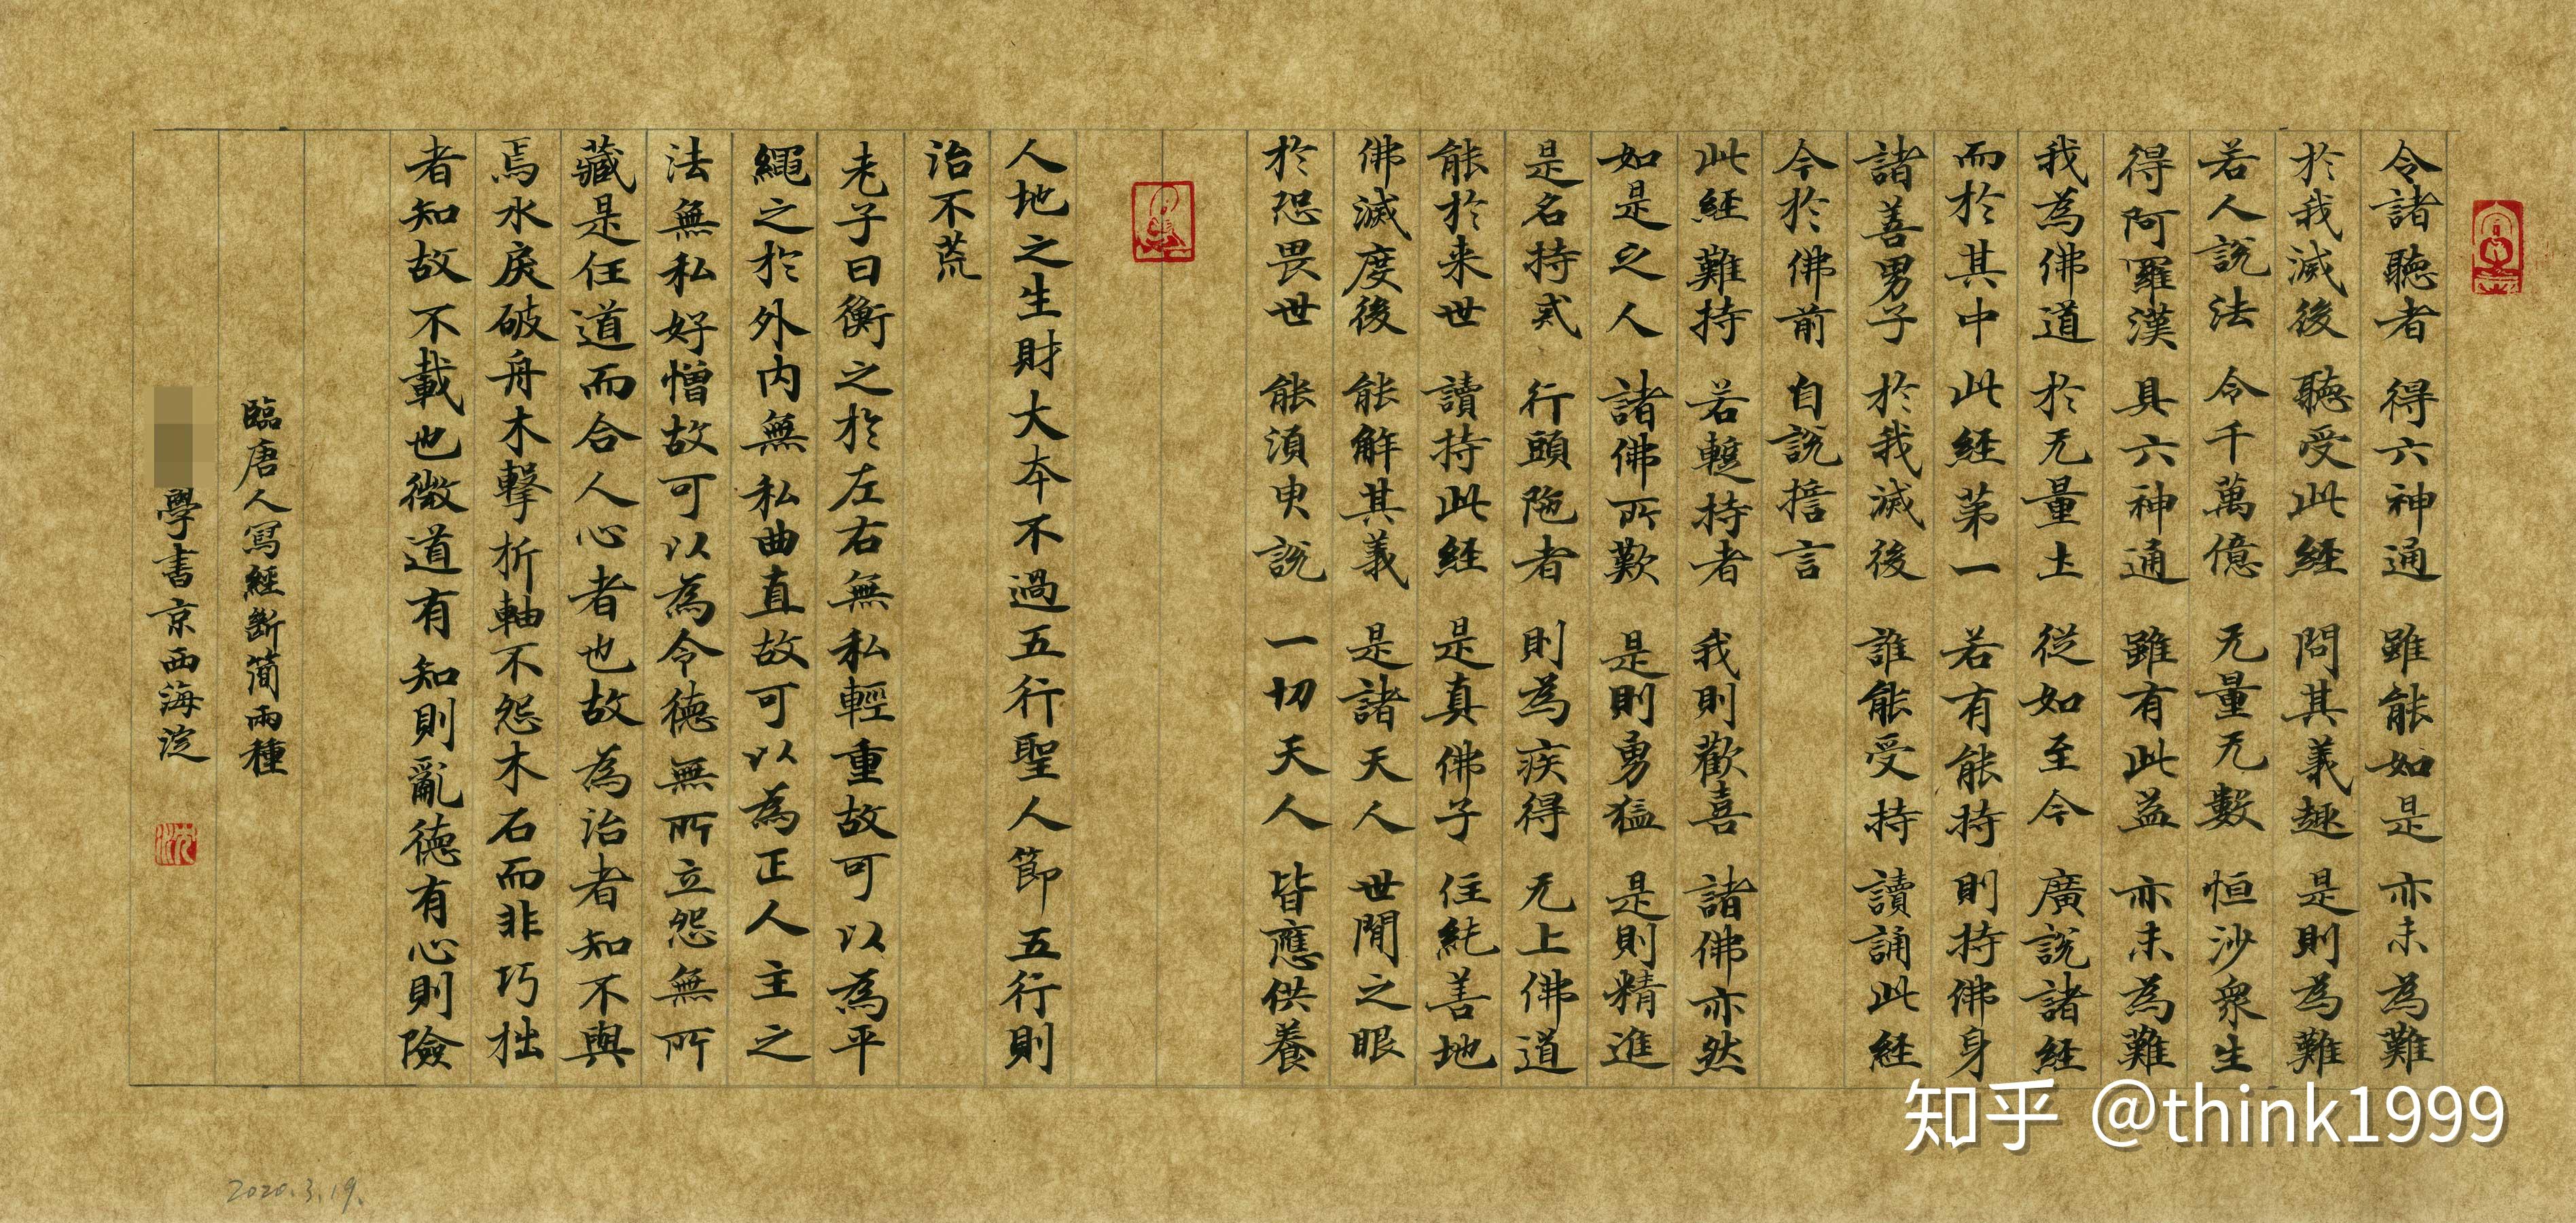 令諸聽者 得六神通 雖能如是 亦未為難
於我滅後 聽受此経 問其義趣 是則為難
若人說法 令千萬億 无量无數 恒沙衆生
得阿羅漢 具六神通 雖有此益 亦未為難
我為佛道 於无量土 從如至今 廣說諸経
而於其中 此経苐一 若有能持 則持佛身
諸善男子 於我滅後 誰能受持 讀誦此経
今於佛前 自說擔言
此經難持 若蹔持者 我則歡喜 諸佛亦然
如是之人 諸佛所歎 是則勇猛 是則精進
是名持貳 行頭陁者 則為疾得 无上佛道
能於来世 讀持此経 是真佛子 住純善地
佛滅度後 能解其義 是諸天人 世間之眼
於恐畏世 能湏申說 一切天人 皆應供養
人地之生財大夲不過五行聖人節五行則
治不荒
老子曰衡之於左右無私輕重故可以為平
繩之於外內無私曲直故可以為正人主之
法無私好憎故可以為令德無所立怨無所
藏是任道而合人心者也故為治者知不與
焉水戾破舟木擊折軸不怨木石而非巧拙
者知故不載也微道有知則亂德有心則險
臨唐人寫經斷簡兩種
學書京西海淀
2020.3.19.
知乎 @think1999